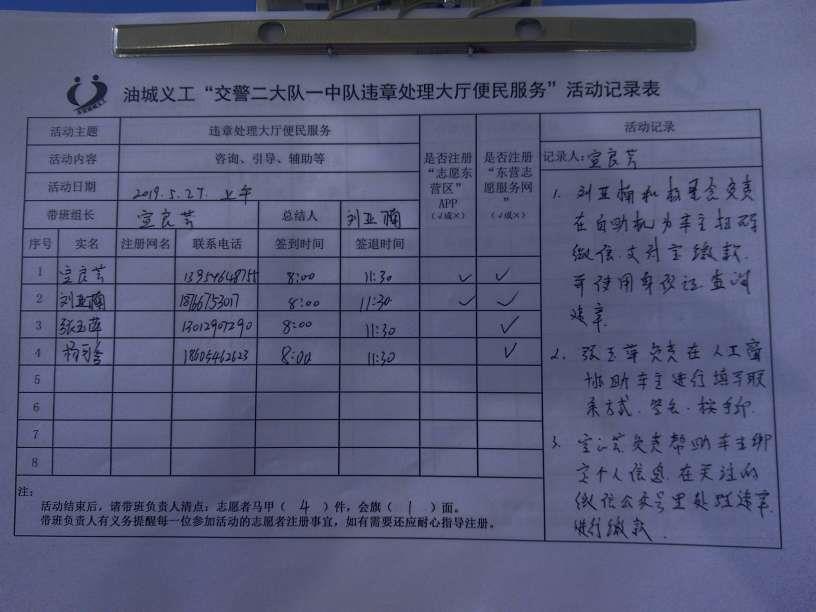 油城义工“交警二大队一中队违章处理大厅便民服务”活动记录表
活动主题 违章处理大厅便民服务
活动内容 咨询、引导、辅助等
活动日期 2019.5.27. 上午
带班组长 宣良芸 总结人 刘亚楠
序号 实名 注册网名 联系电话 签到时间 签退时间
是否注册
“志愿东
营区”
APP
(√或×)
是否注册
“东营志
愿服务网
”
(√或×)
1 宣良芸 13954648755 8:00 11:30 ✓ ✓
2 刘亚楠 18766753017 8:00 11:30 ✓ ✓
3 张玉萍 13012907290 8:00 11:30 ✓
4 杨 18605462623 8:00 11:30 ✓
5
6
7
8
活动记录
记录人:宣良芸
1. 刘亚楠和 负责
在自助机为车主扫码
微信.支付宝缴款.
并使用身份证查询
违章.
2. 张玉萍负责在人工窗
协助车主进行填写联
系方式.签名.按手印.
3. 宣良芸负责帮助车主绑
定个人信息.在关注的
微信公众号里处理违章
进行缴款.
注:
活动结束后,请带班负责人清点:志愿者马甲( 4 )件,会旗( 1 )面。
带班负责人有义务提醒每一位参加活动的志愿者注册事宜,如有需要还应耐心指导注册。